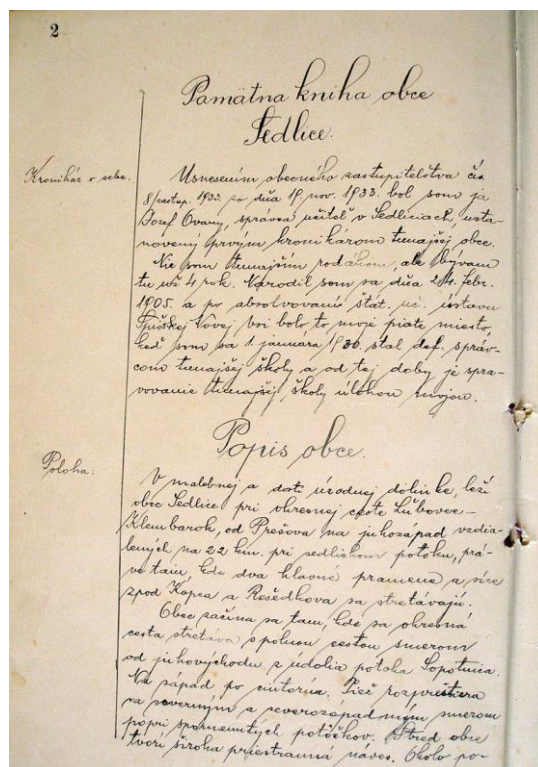 2
Pamätna kniha obce
Sedlice.
Kronikár o sebe.
Usnesením obecného zastupiteľstva čís
8/zastup. 1932 zo dňa 19. nov. 1933. bol som ja
Jozef Ovany, správca učiteľ v Sedliciach, usta-
novený prvým kronikárom tunajšej obce.
Nie som tunajším rodákom, ale bývam
tu už 4 rok. Narodil som sa dňa 24. febr.
1905. a po absolvovaní štát. uč. ústavu
Spišskej Novej vsi bolo to moje piate miesto,
keď som sa 1. januára 1930. stal def. správ-
com tunajšej školy a od tej doby je spra-
vovanie tunajšej školy úlohou mojou.
Popis obce.
Poloha:
V malebnej a dosti úrodnej dolinke, leží
obec Sedlice pri okresnej ceste Ľubovec-
Klembarok, od Prešova na juhozápad vzdia-
lených na 22 km. pri sedlickom potoku, prá-
ve tam, kde dva hlavné pramene a síce
zpod Kopca a Rešedkova sa stretávajú.
Obec začína sa tam, kde sa okresná
cesta stretáva s poľnou cestou smerom
od juhovýchodu z údolia potoka Sopotnia.
Na západ po cintorín. Tiež rozprestiera
sa severným a severozápadným smerom
popri spomenutých potôčkov. Stred obce
tvorí široká priestranná náves. Okolo po-